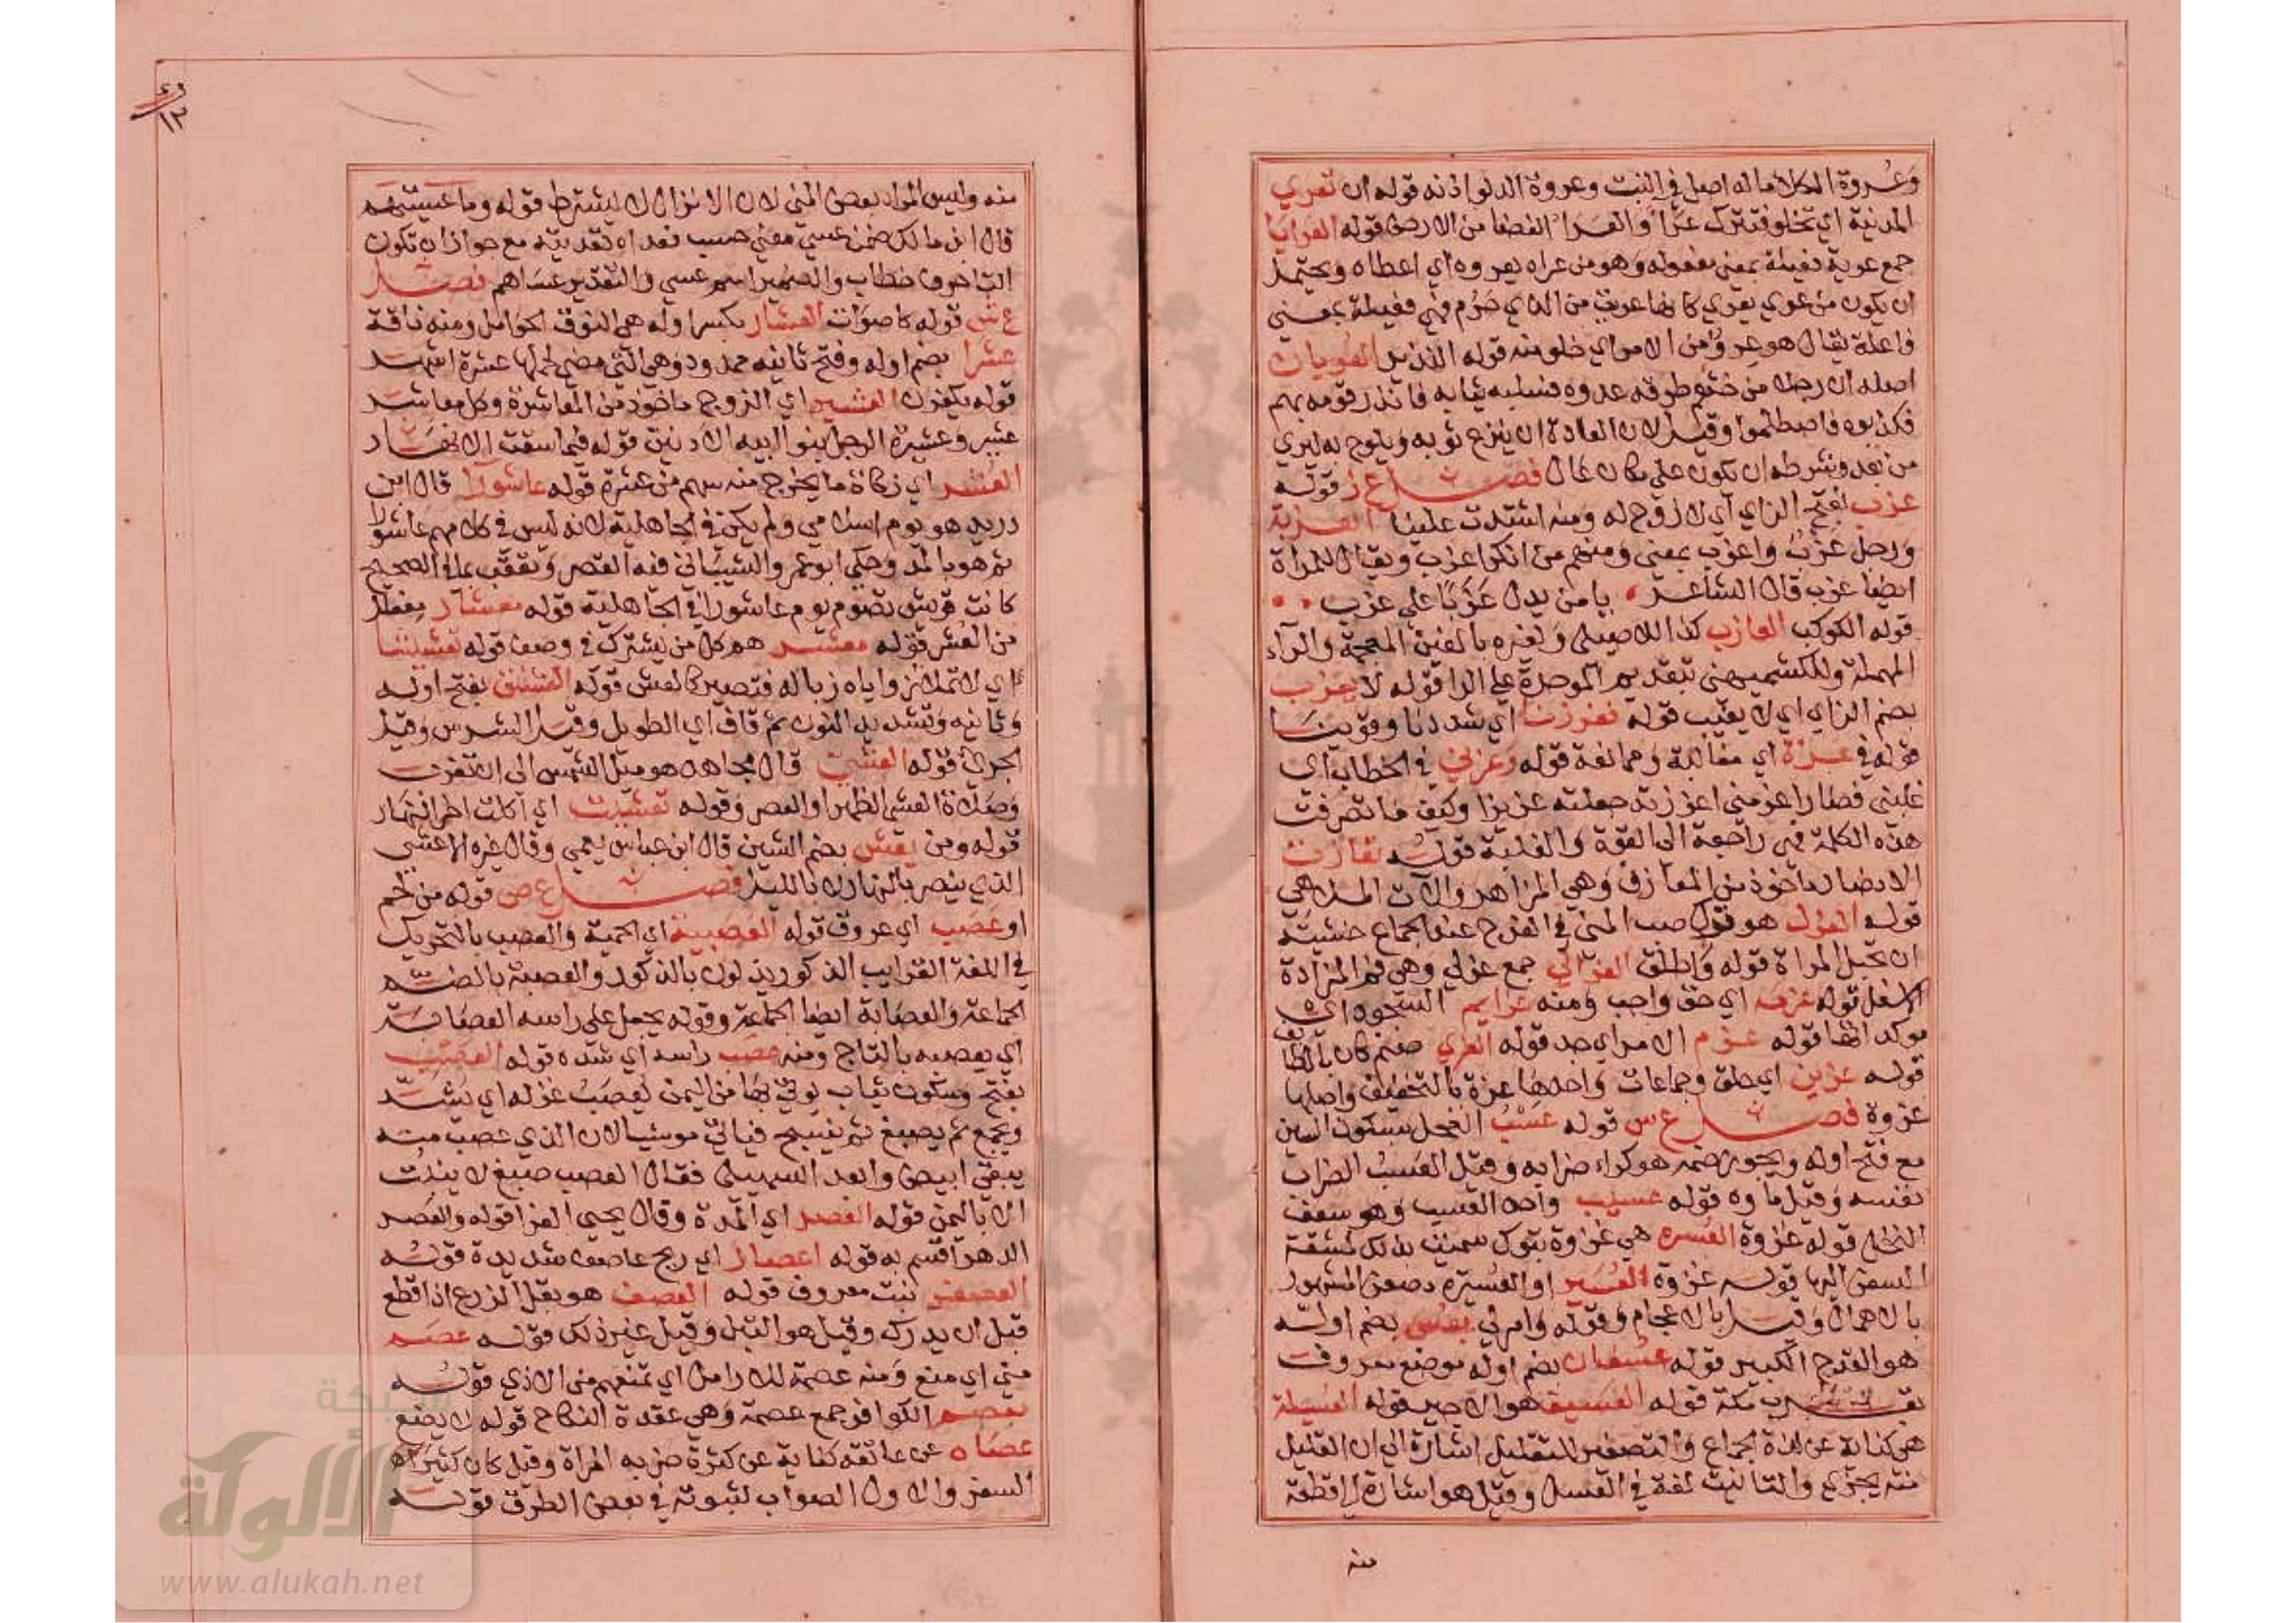 وعروة الكلا ماله اصل في النبت وعروة الدلو اذنه قوله ان تعري
المدينة اي تخلو فتترك عرا والعرا الفضا من الارض قوله العرايا
جمع عرية فعيلة بمعنى مفعوله وهو من عراه يعروه اي اعطاه ويحتمل
ان يكون من عري يعري كانها عريت من الذي حرم فهي فعيلة بمعنى
فاعلة يقال هو عرو من الامر اي خلو منه قوله النذير العريان
اصله ان رجلا من خثعم طرقه عدوه فسلبه ثيابه فانذر قومه بهم
فكذبوه فاصطلموا وقيل لان العادة ان ينزع ثوبه ويلوح به ليري
من بعد وبشرطه ان يكون علي مكان عال فصل ع ز قوله
عزب بفتح الزاي اي لا زوج له ومنه اشتدت علينا العزبة
ورجل عزب واعزب بمعنى ومنهم من انكر اعزب ويقال للمراة
ايضا عزب قال الشاعر يا من يدل عزبا علي عزب
قوله الكوكب العازب كذا للاصيلي ولغيره بالغين المعجمة والرآء
المهملة وللكشميهني بتقديم الموحدة علي الرا قوله لا يعزب
بضم الزاي اي لا يغيب قوله فعززنا اي شددنا وقوينا
قوله في عزة اي مغالبة وممانعة قوله وعزني في الخطاب اي
غلبني فصار اعز مني اعززته جعلته عزيزا وكيف ما تصرفت
هذه الكلمة فهي راجعة الى القوة والغلبة قوله تعازفت
الانصار ماخوذ من المعازف وهي المزاهر والآت الملاهي
قوله العزل هو ترك صب المني في الفرج عند الجماع خشية
ان تحبل المراة قوله واطلق العزالي جمع عزلي وهي فم المزادة
الاسفل قوله عزمة اي حق واجب ومنه عزايم السجود اي
موكداتها قوله عزم الامر اي جد قوله العزي صنم كان بالطايف
قوله عزين اي حلق وجماعات واحدها عزة بالتخفيف واصلها
عزوة فصل ع س قوله عسب الفحل بسكون السين
مع فتح اوله ويجوز ضمه هو كراء ضرابه وقيل العسب الضراب
نفسه وقيل ماوه قوله عسيب واحد العسيب وهو سعف
النخل قوله غزوة العسره هي غزوة تبوك سميت بذلك لمشقة
السفر اليها قوله غزوة العسير او العسيرة بصغر المشهور
بالاهمال وقيل بالاعجام وقوله وامرني بعس بضم اوله
هو القدح الكبير قوله عسفان بضم اوله موضع معروف
بقرب مكة قوله العسيف هو الاجير قوله العسيلة
هي كناية عن لذة الجماع والتصغير للتقليل اشارة الي ان القليل
منه يجزي والتانيث لغة في العسل وقيل هو اشارة الي قطعة
منه
منه وليس المراد بعض المني لان الانزال لا يشترط قوله وما عسيتهم
قال ابن مالك ضمن عسي معني حسب فعداه تعديته مع جواز ان تكون
التا حرف خطاب والضمير اسم عسي والتقدير عساهم فصل
ع ش قوله كاصوات العشار بكسر اوله هي النوق الحوامل ومنه ناقة
عشرا بضم اوله وفتح ثانيه ممدود وهي التي مضي لحملها عشرة اشهر
قوله يكفرن العشير اي الزوج ماخوذ من المعاشرة وكل معاشر
عشير وعشيرة الرجل بنوا ابيه الادنين قوله فيما سقت الانهار
العشر اي زكاة ما يخرج منه سهم من عشرة قوله عاشورا قال ابن
دريد هو يوم اسلامي ولم يكن في الجاهلية لانه ليس في كلامهم عاشورا
ثم هو بالمد وحكي ابو عمرو الشيباني فيه القصر وتعقب بما في الصحيح
كانت قريش تصوم يوم عاشورا في الجاهلية قوله معشار مفعال
من العشر قوله معشر هم كل من يشترك في وصف قوله تعشيشا
اي لا تملا زواياه زباله فتصير كالعش قوله العشنق بفتح اوله
وثانيه وتشديد النون ثم قاف اي الطويل وقيل الشرس وقيل
الجري قوله العشي قال مجاهد هو ميل الشمس الى ان تغرب
وصلاة العشي الظهر او العصر وقوله تعشيت اي اكلت اخر النهار
قوله ومن يعش بضم الشين قال ابن عباس يعمي وقال غيره الاعشي
الذي يبصر بالنهار لا بالليل فصل ع ص قوله من لحم
او عصب اي عروق قوله العصبية اي الحمية والعصب بالتحريك
في اللغة القرايب الذكور يدلون بالذكور والعصبة بالضم
الجماعة والعصابة ايضا الجماعة وقوله يجعل على راسه العصابة
اي يعصبه بالتاج ومنه عصب راسه اي شده قوله العصب
بفتح وسكون ثياب يوتي بها من اليمن يعصب غزله اي يشد
ويجمع ثم يصبغ ثم ينسج فياتي موشيا لان الذي عصب منه
يبقي ابيض وابعد السهيلي فقال العصب صبغ لا ينبت
الا باليمن قوله العصر اي المدة وقال يحيي الفرا قوله والعصر
الدهر اقسم به قوله اعصار اي ريح عاصف شديدة قوله
العصفر نبت معروف قوله العصف هو بقل الزرع اذا قطع
قبل ان يدرك وقيل هو التبن وقيل غير ذلك قوله عصم
مني اي منع ومنه عصمة للارامل اي تمنعهم من الاذي قوله
بعصم الكوافر جمع عصمة وهي عقدة النكاح قوله لا يضع
عصاه عن عاتقه كناية عن كثرة ضربه المراة وقيل كان كثير
السفر والاول الصواب لثبوته في بعض الطرق قوله
شبكة
الألوكة
www.alukah.net